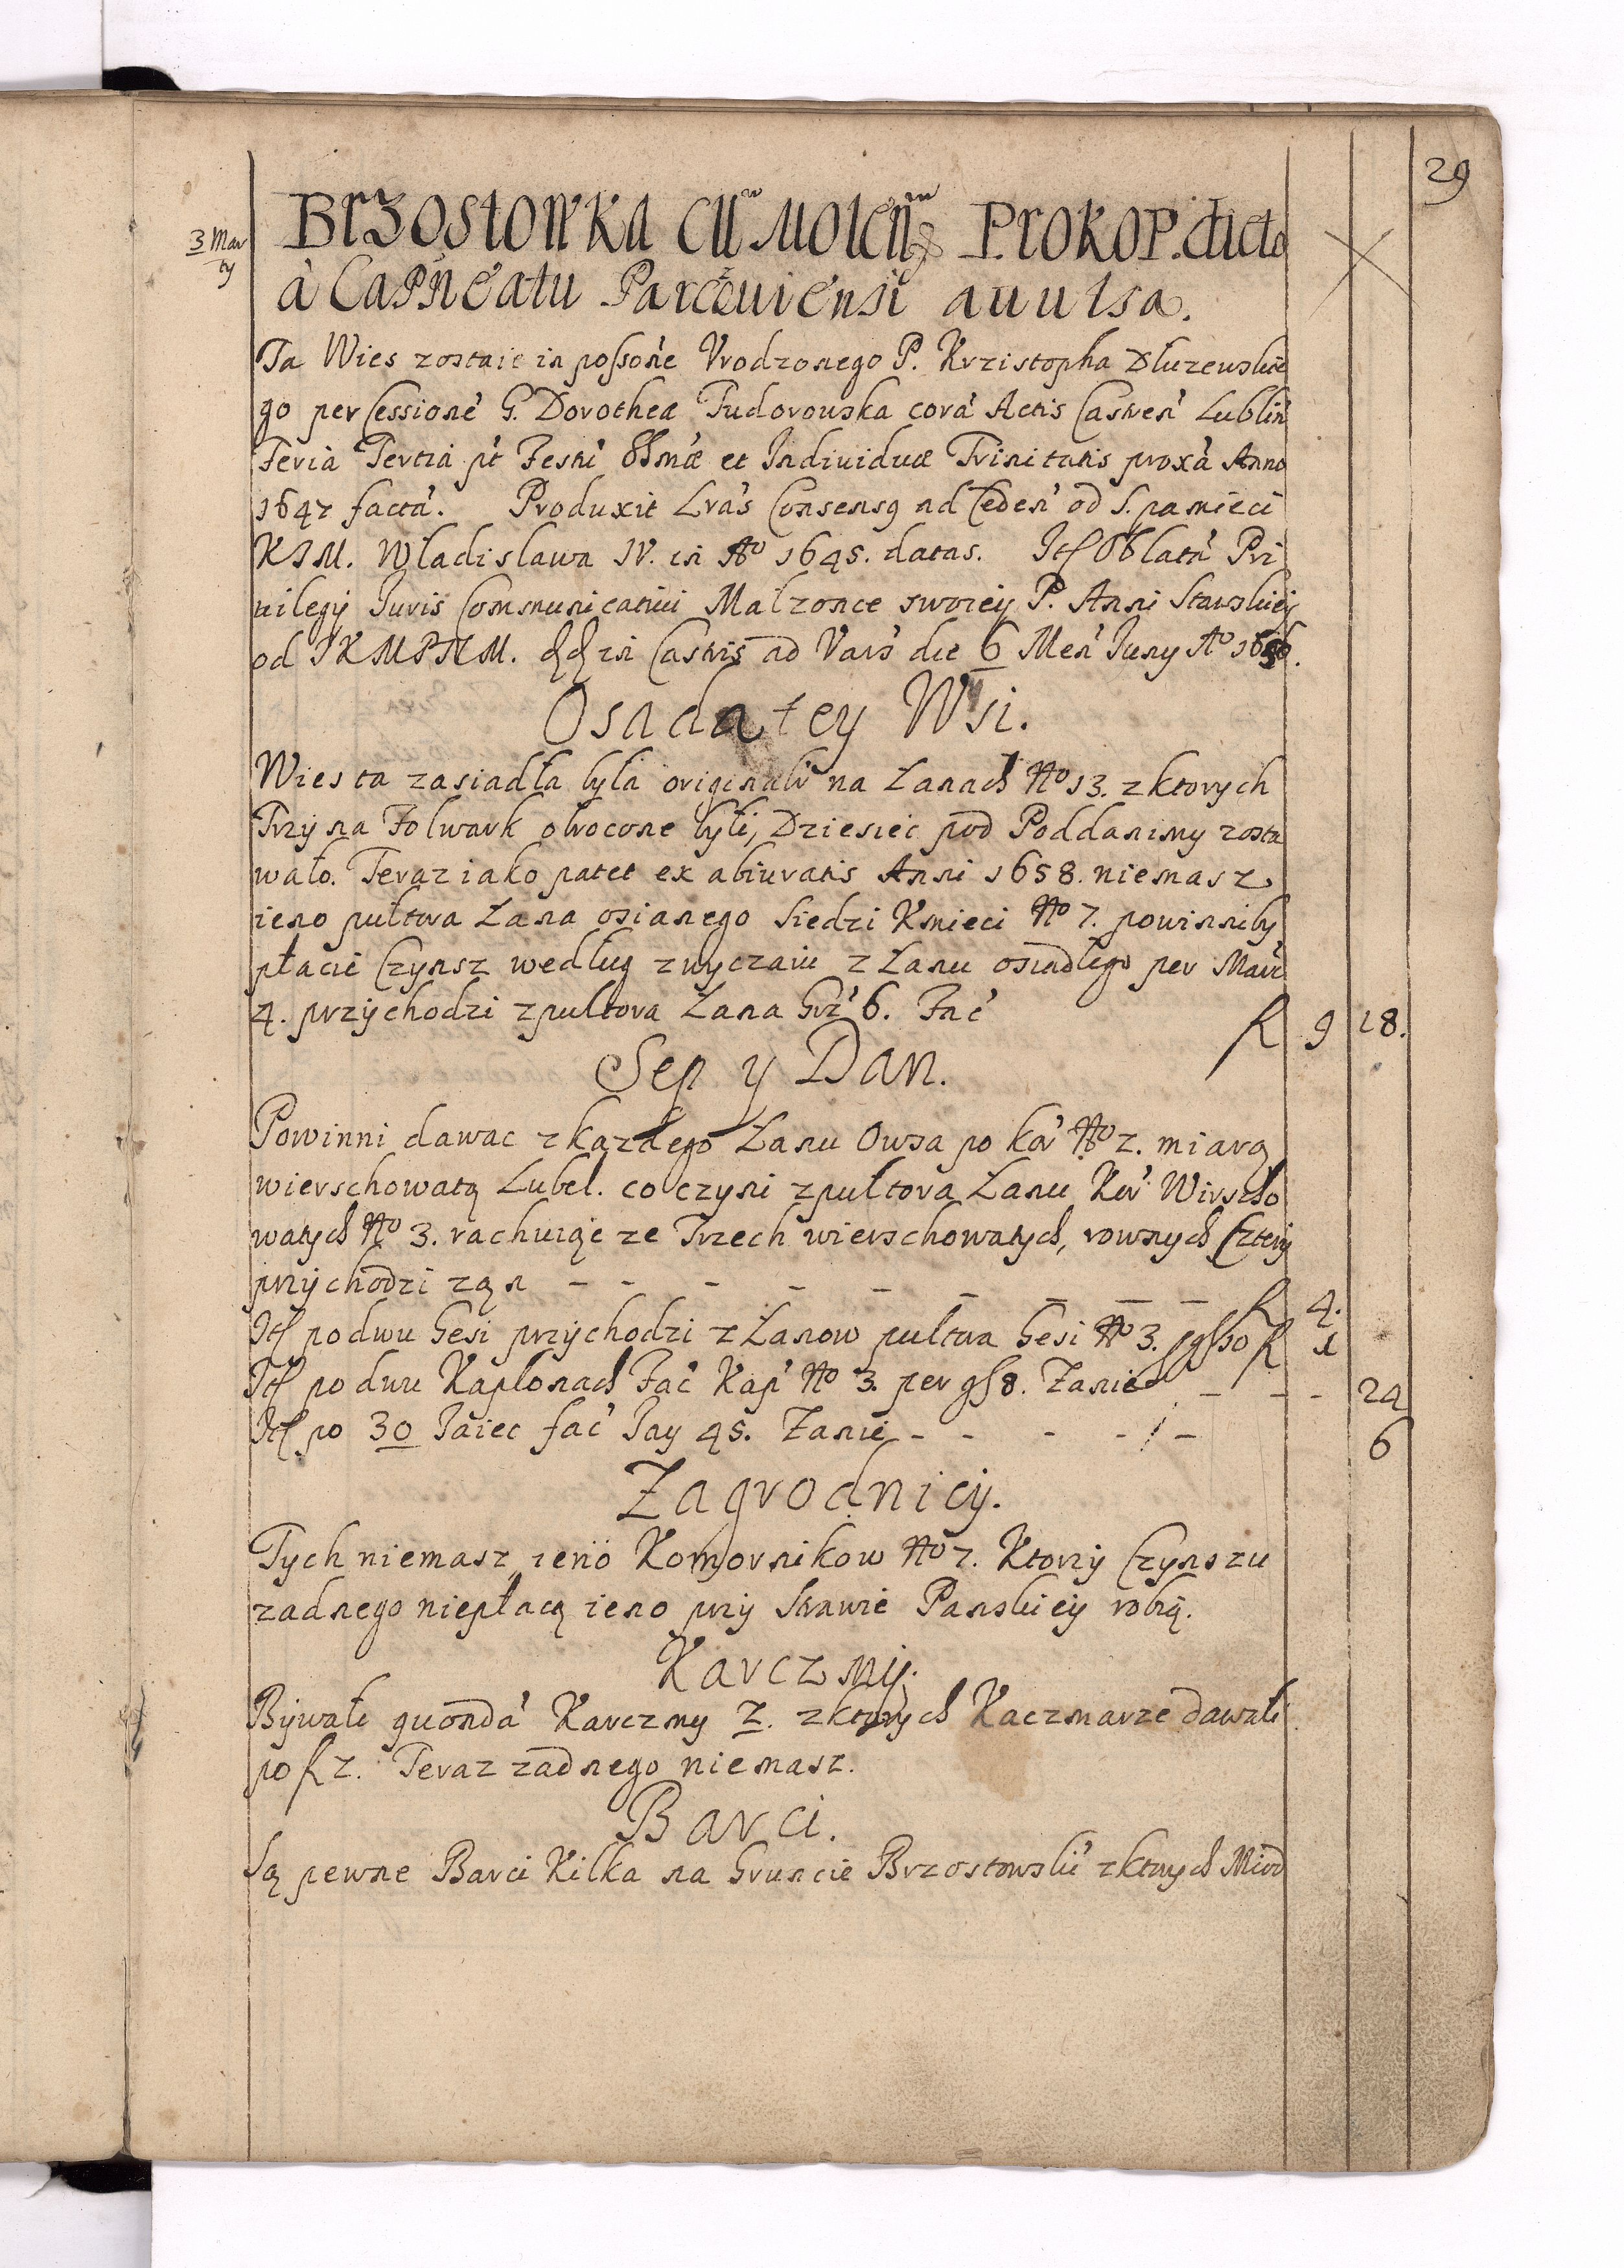 29
3 Mar
ty
Brzostowka cum Molen Prokop. dicto
à Capneatu Parczeuiensi auulsa.
Ta Wies zostaie in possone Vrodzonego P. Krzistopha Dluzewskie
go per Cessione G. Dorothea Tudorowska cora Actis Castren Lublin
Feria Tertia pt Festu SSmæ et Indiuiduæ Trinitatis proxa Anno
1647 facta. Produxit Lras Consensg ad Ceden od S. pamieci
KIM. Wladislawa IV. in Ao 1645. datas. Oblata Pri
uilegij Iuris Communicatiui Malzonce swoiey P. Anni Stawskiey
od IKMPNM. in Castris ad Vars die 6 Men Iuny Ao 1656.
Osada tey Wsi.
Wies ta zasiadła była originalr na Łanach No 13. z ktorych
Trzy na Folwark obrocone byłi, Dziesieć pod Poddanimy zosta
wało. Teraz iako patet ex abiuratis Anni 1658. niemasz
ieno pułtora Łana osianego Siedzi Kmieci No 7. powinniby
płacić Czynsz według zwyczaiu z Łanu osiadłego per Marc
4. przychodzi z pułtora Łana Grz 6. Fac f 9 18.
Sep y Dan.
Powinni dawac z kazdego Łanu Owsa po kor No 2. miarą
wierschowatą Lubel. co czyni z pułtora Łanu Kor Wirscho
watych No 3. rachuiąc ze Trzech wierschowatych, rownych Cztery
przychodzi zą n - - - - - - - - f 4.
It po dwu Gesi przychodzi z Łanow pułtora Gesi No 3. p gs 10 f 1
It po dwu Kapłonach Fac Kap No 3. per gs 8. Zanie - - - 24
It po 30 Iaiec fac Iay 45. Zanie - - - - - 6
Zagrodnicy.
Tych niemasz, ieno Komornikow No 7. Ktorzy Czynszu
zadnego niepłacą ieno przy Strawie Panskiey robią.
Karczmy.
Bywałi quonda Karczmy 2. z ktorych Kaczmarze dawałi
po f 2. Teraz zadnego niemasz.
Barci.
Są pewne Barci Kilka na Gruncie Brzostowski z ktorych Miod